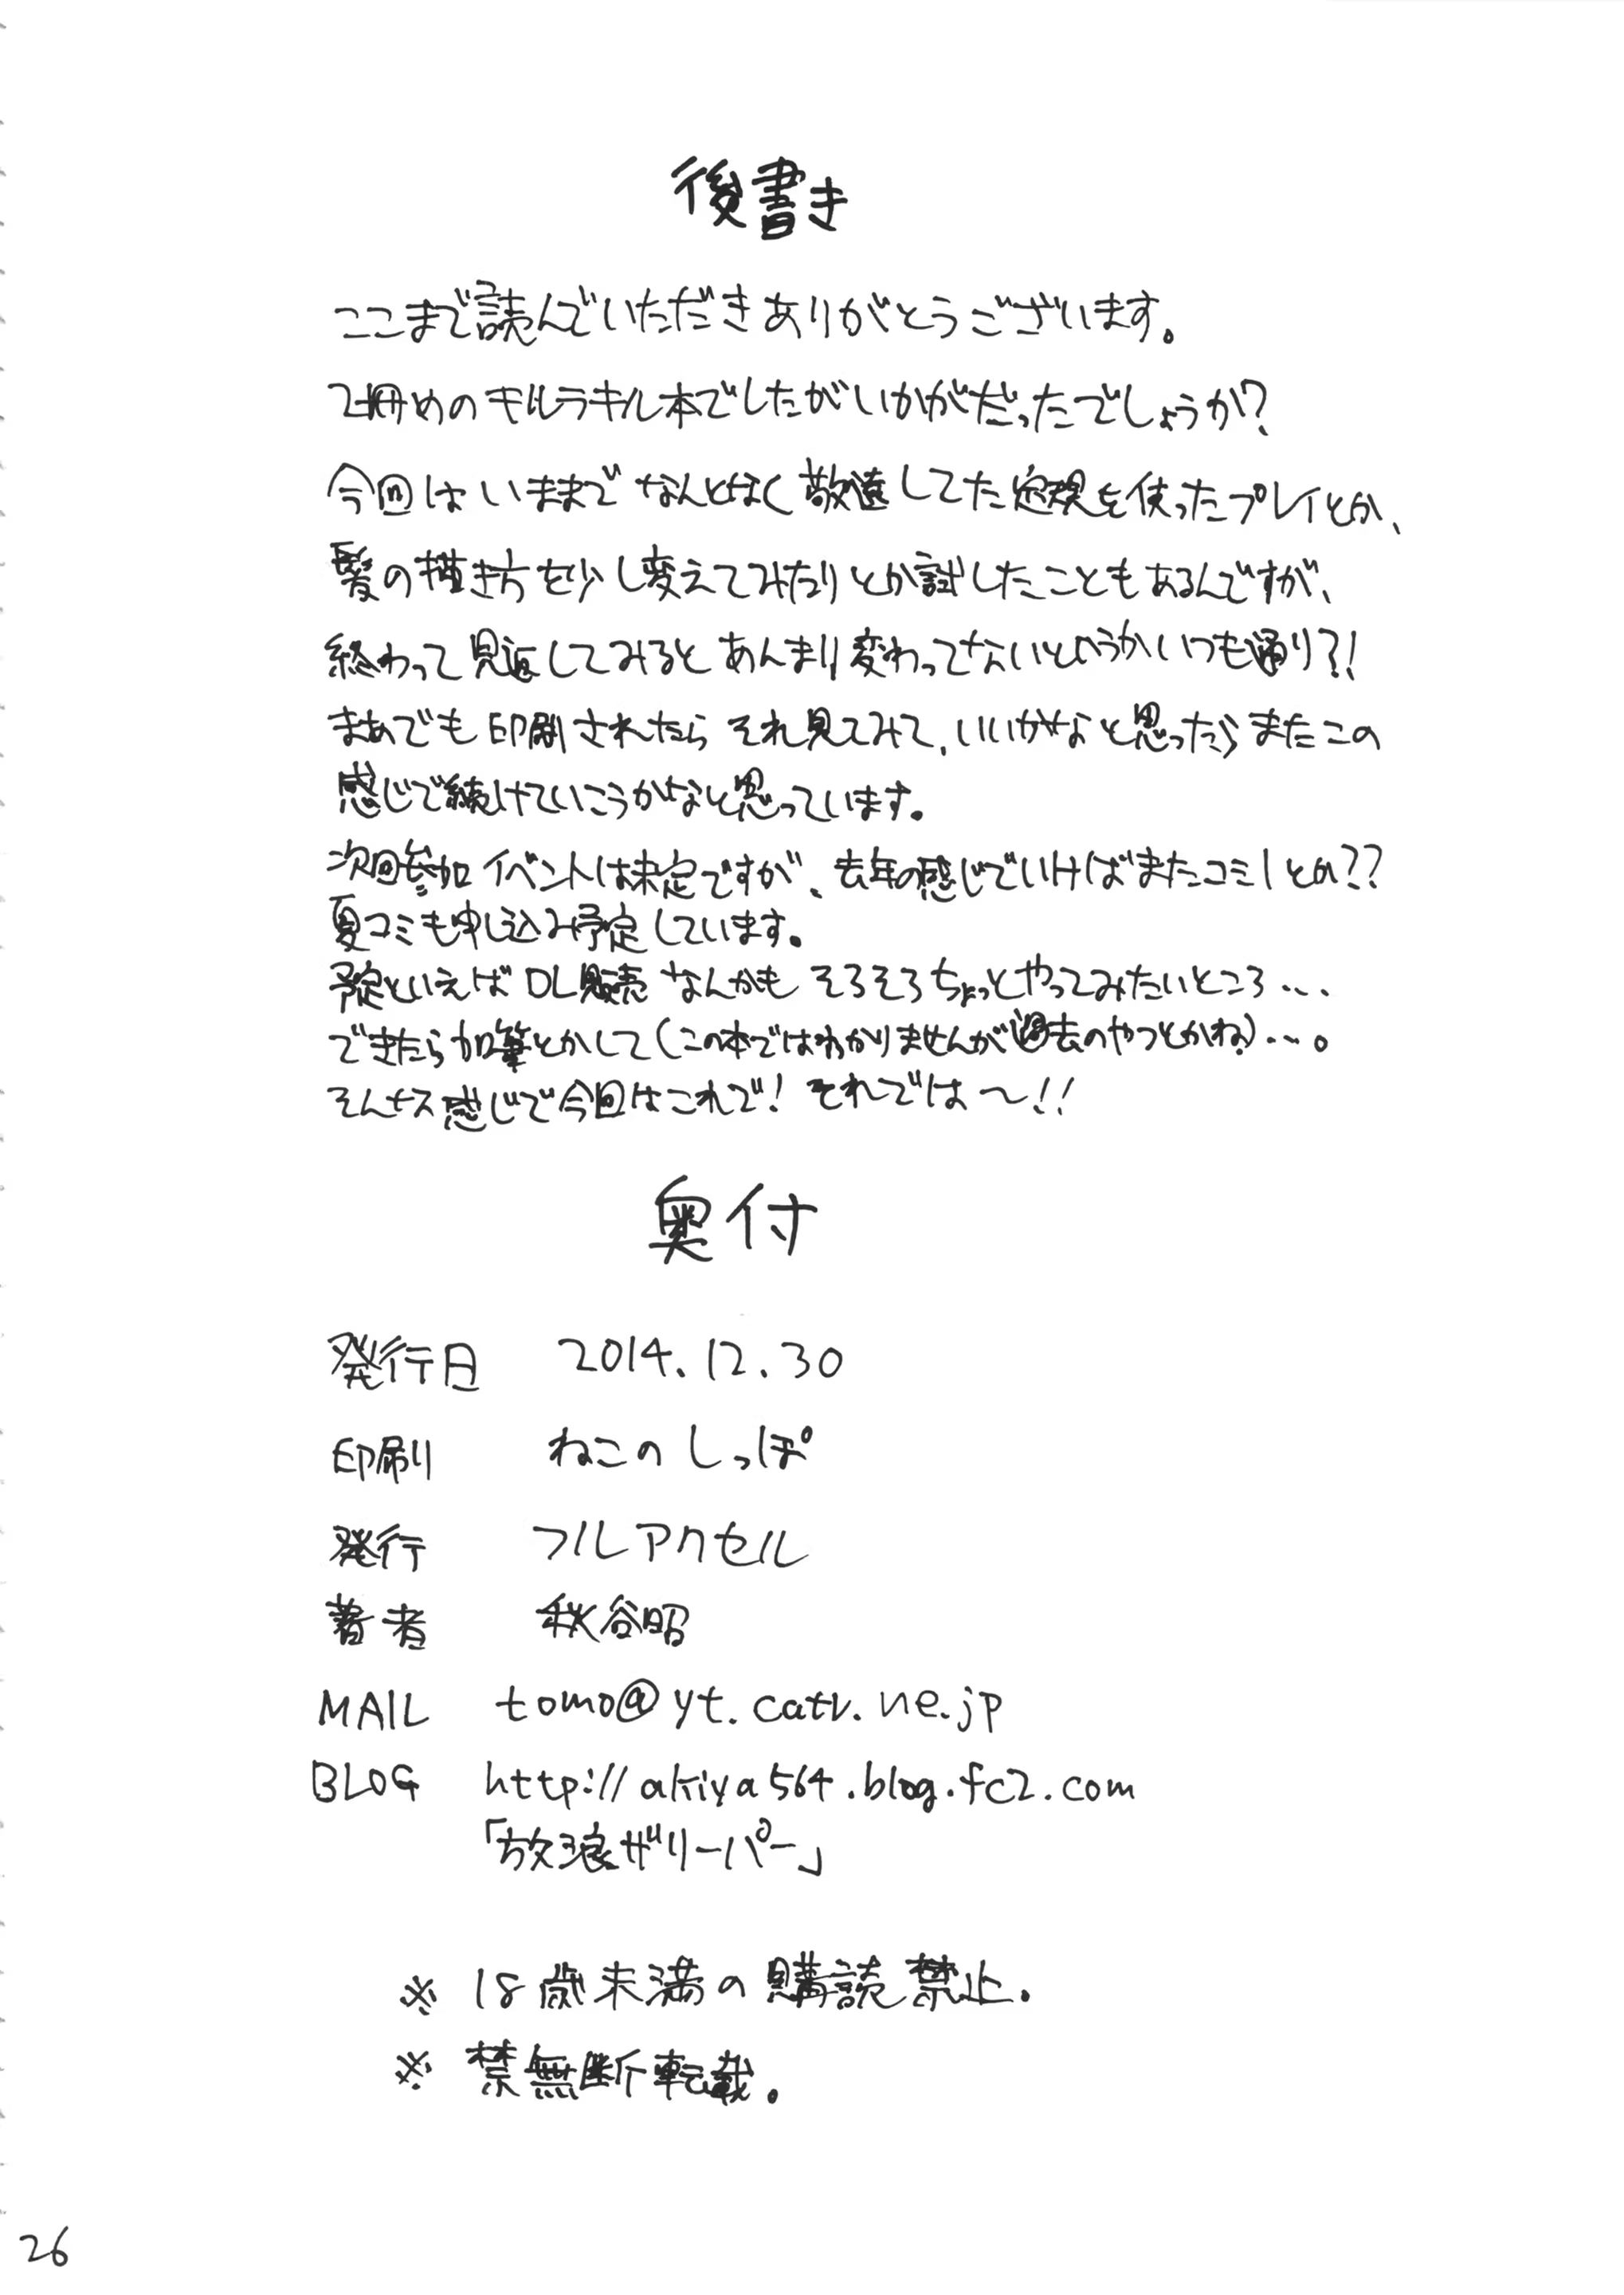 後書き
ここまで読んでいただきありがとうございます。
2冊めのキルラキル本でしたがいかがだったでしょうか?
今回はいままでなんとなく敬遠してた定規を使ったプレイとか、
髪の描き方を少し変えてみたりとか試したこともあるんですが、
終わって見返してみるとあんまり変わってないというかいつも通り?!
まあでも印刷されたらそれ見てみて、いいかなと思ったらまたこの
感じで続けていこうかなと思っています。
次回参加イベントは未定ですが、去年の感じでいけばまたコミ1とか??
夏コミも申し込み予定しています。
予定といえばDL販売なんかもそろそろちょっとやってみたいところ...
できたら加筆とかして(この本ではわかりませんが過去のやつとかね)...。
そんなス感じで今回はこれで!それでは〜!!
奥付
発行日 2014.12.30
印刷 ねこのしっぽ
発行 フルアクセル
著者 秋谷昭
MAIL tomo@yt.catv.ne.jp
BLOG http://akiya564.blog.fc2.com
「放浪ザリーパー」
※ 18歳未満の購読禁止.
※ 禁無断転載.
26